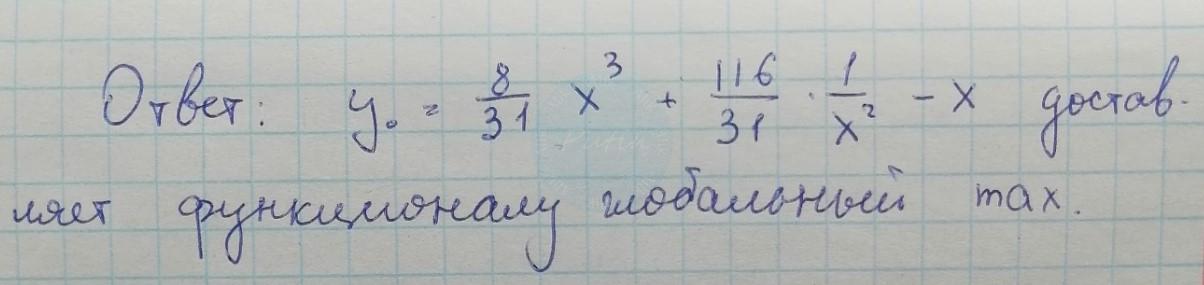 Ответ: y₀ = 8/31 x³ + 116/31 · 1/x² − x достав-
ляет функционалу глобальный max.